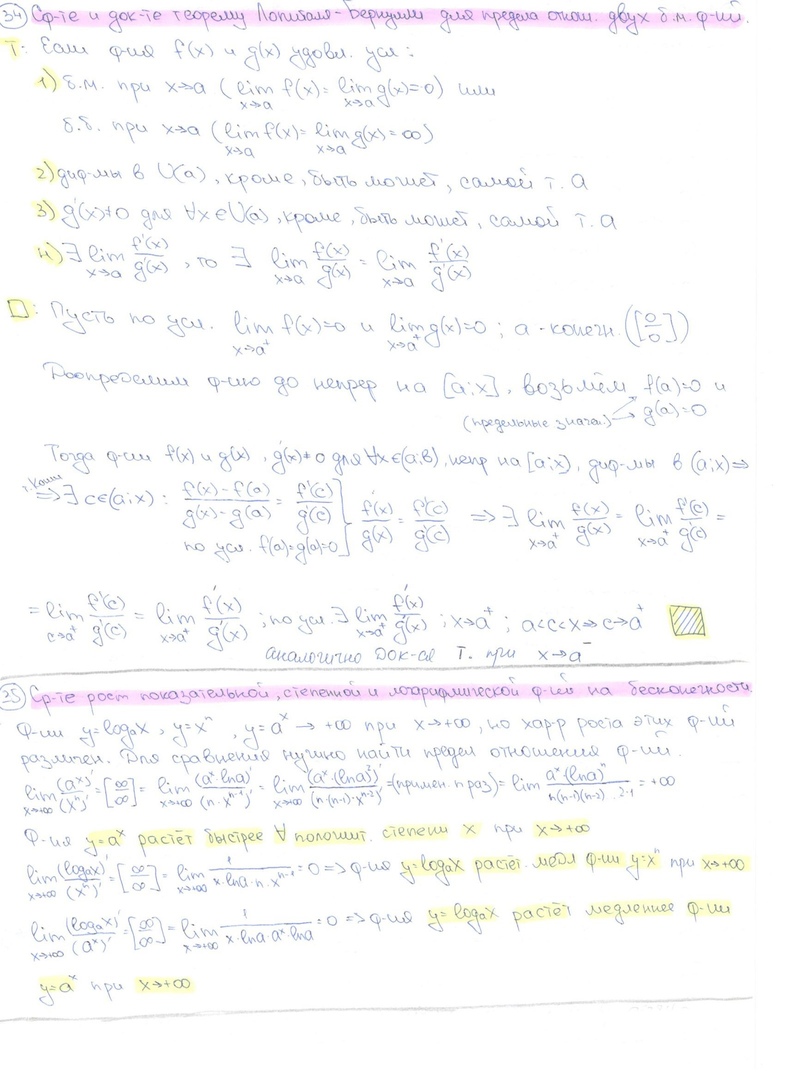 34 Сф-те и док-те теорему Лопиталя-Бернулли для предела отнош. двух б.м. ф-ий.
Т: Если ф-ия f(x) и g(x) удовл. усл:
1) б.м. при x→a (lim f(x) = lim g(x) = 0) или
x→a x→a
б.б. при x→a (lim f(x) = lim g(x) = ∞)
x→a x→a
2) диф-мы в U(a), кроме, быть может, самой т. a
3) g'(x)≠0 для ∀x∈U(a), кроме, быть может, самой т. a
4) ∃ lim f'(x)/g'(x), то ∃ lim f(x)/g(x) = lim f'(x)/g'(x)
x→a x→a x→a
□: Пусть по усл. lim f(x)=0 и lim g(x)=0; a - конечн. ([0/0])
x→a⁺ x→a⁺
Доопределим ф-ию до непрер на [a;x], возьмём f(a)=0 и
(предельные знач.) g(a)=0
Тогда ф-ии f(x) и g(x), g'(x)≠0 для ∀x∈(a;в), непр на [a;x], диф-мы в (a;x) ⇒
т. Коши
⇒ ∃ c∈(a;x): f(x)-f(a)/g(x)-g(a) = f'(c)/g'(c) } f'(x)/g(x) = f'(c)/g'(c) ⇒ ∃ lim f(x)/g(x) = lim f'(c)/g'(c) =
по усл. f(a)=g(a)=0 x→a⁺ x→a⁺
= lim f'(c)/g'(c) = lim f'(x)/g'(x); по усл. ∃ lim f'(x)/g'(x); x→a⁺; a<c<x ⇒ c→a⁺
c→a⁺ x→a⁺ x→a⁺
аналогично док-ся т. при x→a⁻
35 Ср-те рост показательной, степенной и логарифмической ф-ий на бесконечности.
Ф-ии y=logₐx, y=xⁿ, y=aˣ → +∞ при x→+∞, но хар-р роста этих ф-ий
различен. Для сравнения нужно найти предел отношения ф-ий.
lim (aˣ)'/(xⁿ)' = [∞/∞] = lim (aˣ·lna)'/(n·xⁿ⁻¹)' = lim (aˣ·(lna)²)'/(n·(n-1)·xⁿ⁻²)' = (примен. n раз) = lim aˣ·(lna)ⁿ/n(n-1)(n-2)...2·1 = +∞
x→+∞ x→+∞ x→+∞
Ф-ия y=aˣ растёт быстрее ∀ положит. степени x при x→+∞
lim (logₐx)'/(xⁿ)' = [∞/∞] = lim 1/x·lna·n·xⁿ⁻¹ = 0 ⇒ ф-ия y=logₐx растёт медл ф-ии y=xⁿ при x→+∞
x→+∞ x→+∞
lim (logₐx)'/(aˣ)' = [∞/∞] = lim 1/x·lna·aˣ·lna = 0 ⇒ ф-ия y=logₐx растёт медленнее ф-ии
x→+∞ x→+∞
y=aˣ при x→+∞